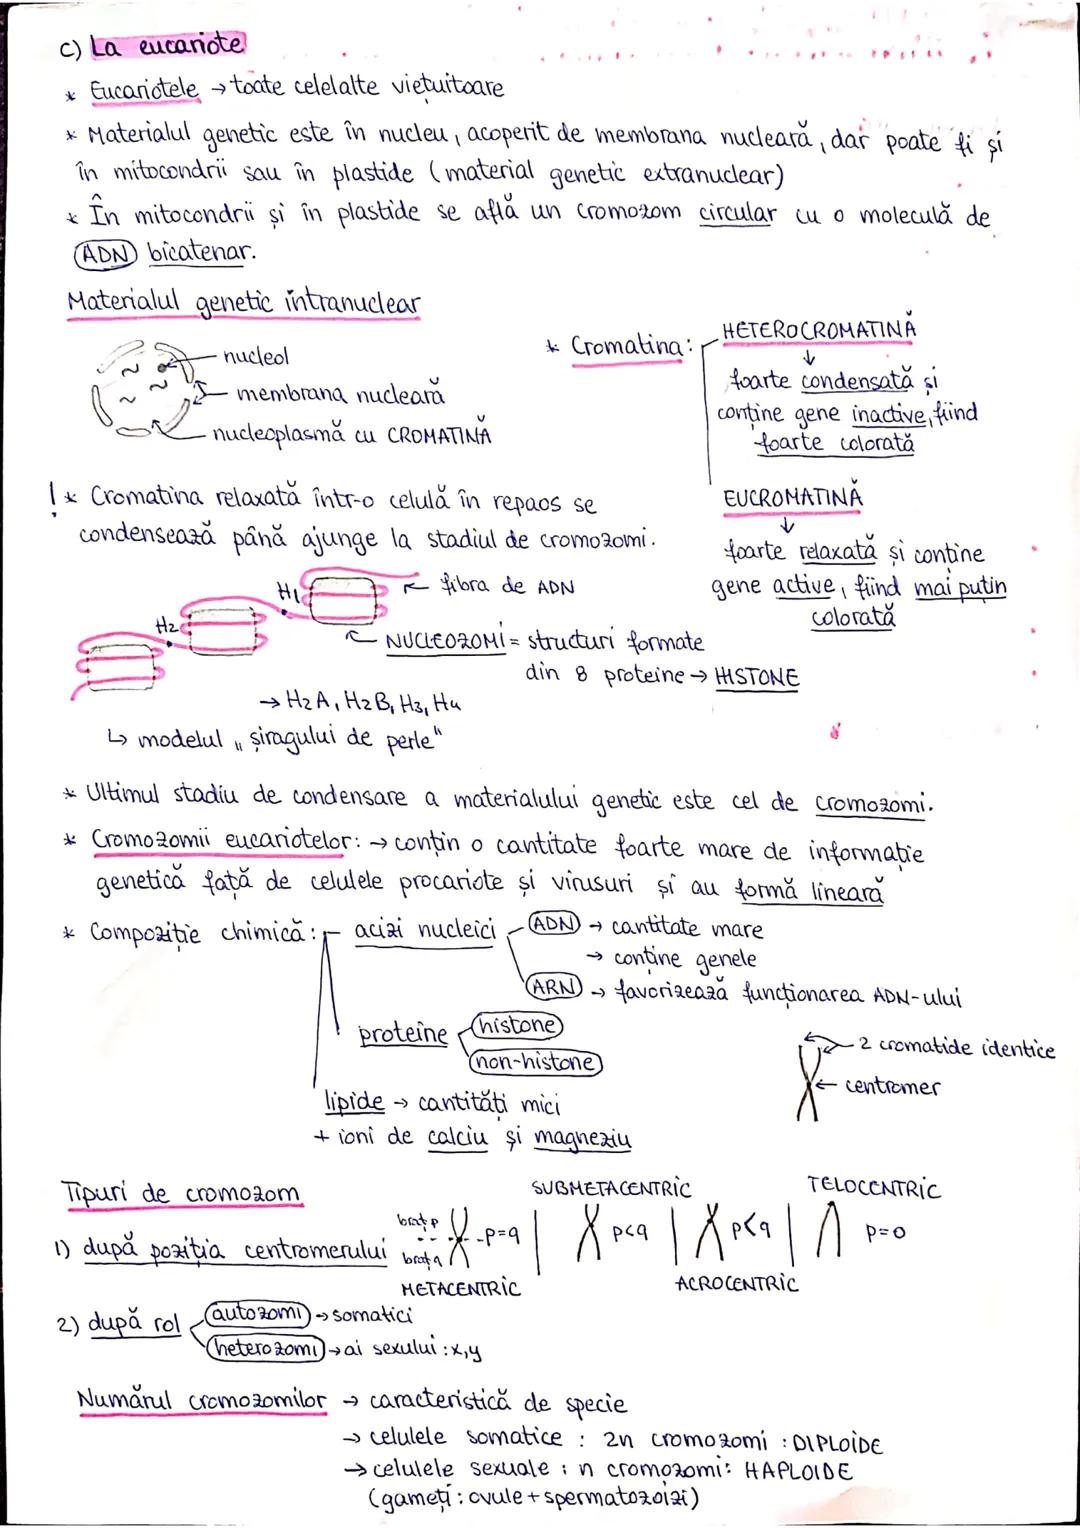 c) La eucariote
* Eucariotele → toate celelalte viețuitoare
* Materialul genetic este în nucleu, acoperit de membrana nucleară, dar poate fi și
în mitocondrii sau în plastide (material genetic extranuclear)
* În mitocondrii și în plastide se află un cromozom circular cu o moleculă de
ADN bicatenar.
Materialul genetic intranuclear
nucleol
membrana nucleară
nucleoplasmă cu CROMATINĂ
* Cromatina:
HETEROCROMATINĂ
↓
foarte condensată și
conține gene inactive, fiind
foarte colorată
EUCROMATINĂ
↓
foarte relaxată și conține
gene active, fiind mai puțin
colorată
! * Cromatina relaxată într-o celulă în repaos se
condensează până ajunge la stadiul de cromozomi.
H1
← fibra de ADN
H2
← NUCLEOZOMI = structuri formate
din 8 proteine → HISTONE
→ H2A, H2B, H3, H4
↳ modelul „șiragului de perle"
* Ultimul stadiu de condensare a materialului genetic este cel de cromozomi.
* Cromozomii eucariotelor: → conțin o cantitate foarte mare de informație
genetică față de celulele procariote și virusuri și au formă lineară
* Compoziție chimică: acizi nucleici ADN → cantitate mare
→ conține genele
ARN → favorizează funcționarea ADN-ului
proteine histone
non-histone
lipide → cantități mici
+ ioni de calciu și magneziu
2 cromatide identice
← centromer
Tipuri de cromozom
1) după poziția centromerului
braț p
braț q
p=q
METACENTRIC
SUBMETACENTRIC
p<q
p<q
ACROCENTRIC
TELOCENTRIC
p=0
2) după rol autozomi → somatici
heterozomi → ai sexului : x,y
Numărul cromozomilor → caracteristică de specie
→ celulele somatice : 2n cromozomi : DIPLOIDE
→ celulele sexuale : n cromozomi : HAPLOIDE
(gameți : ovule + spermatozoizi)